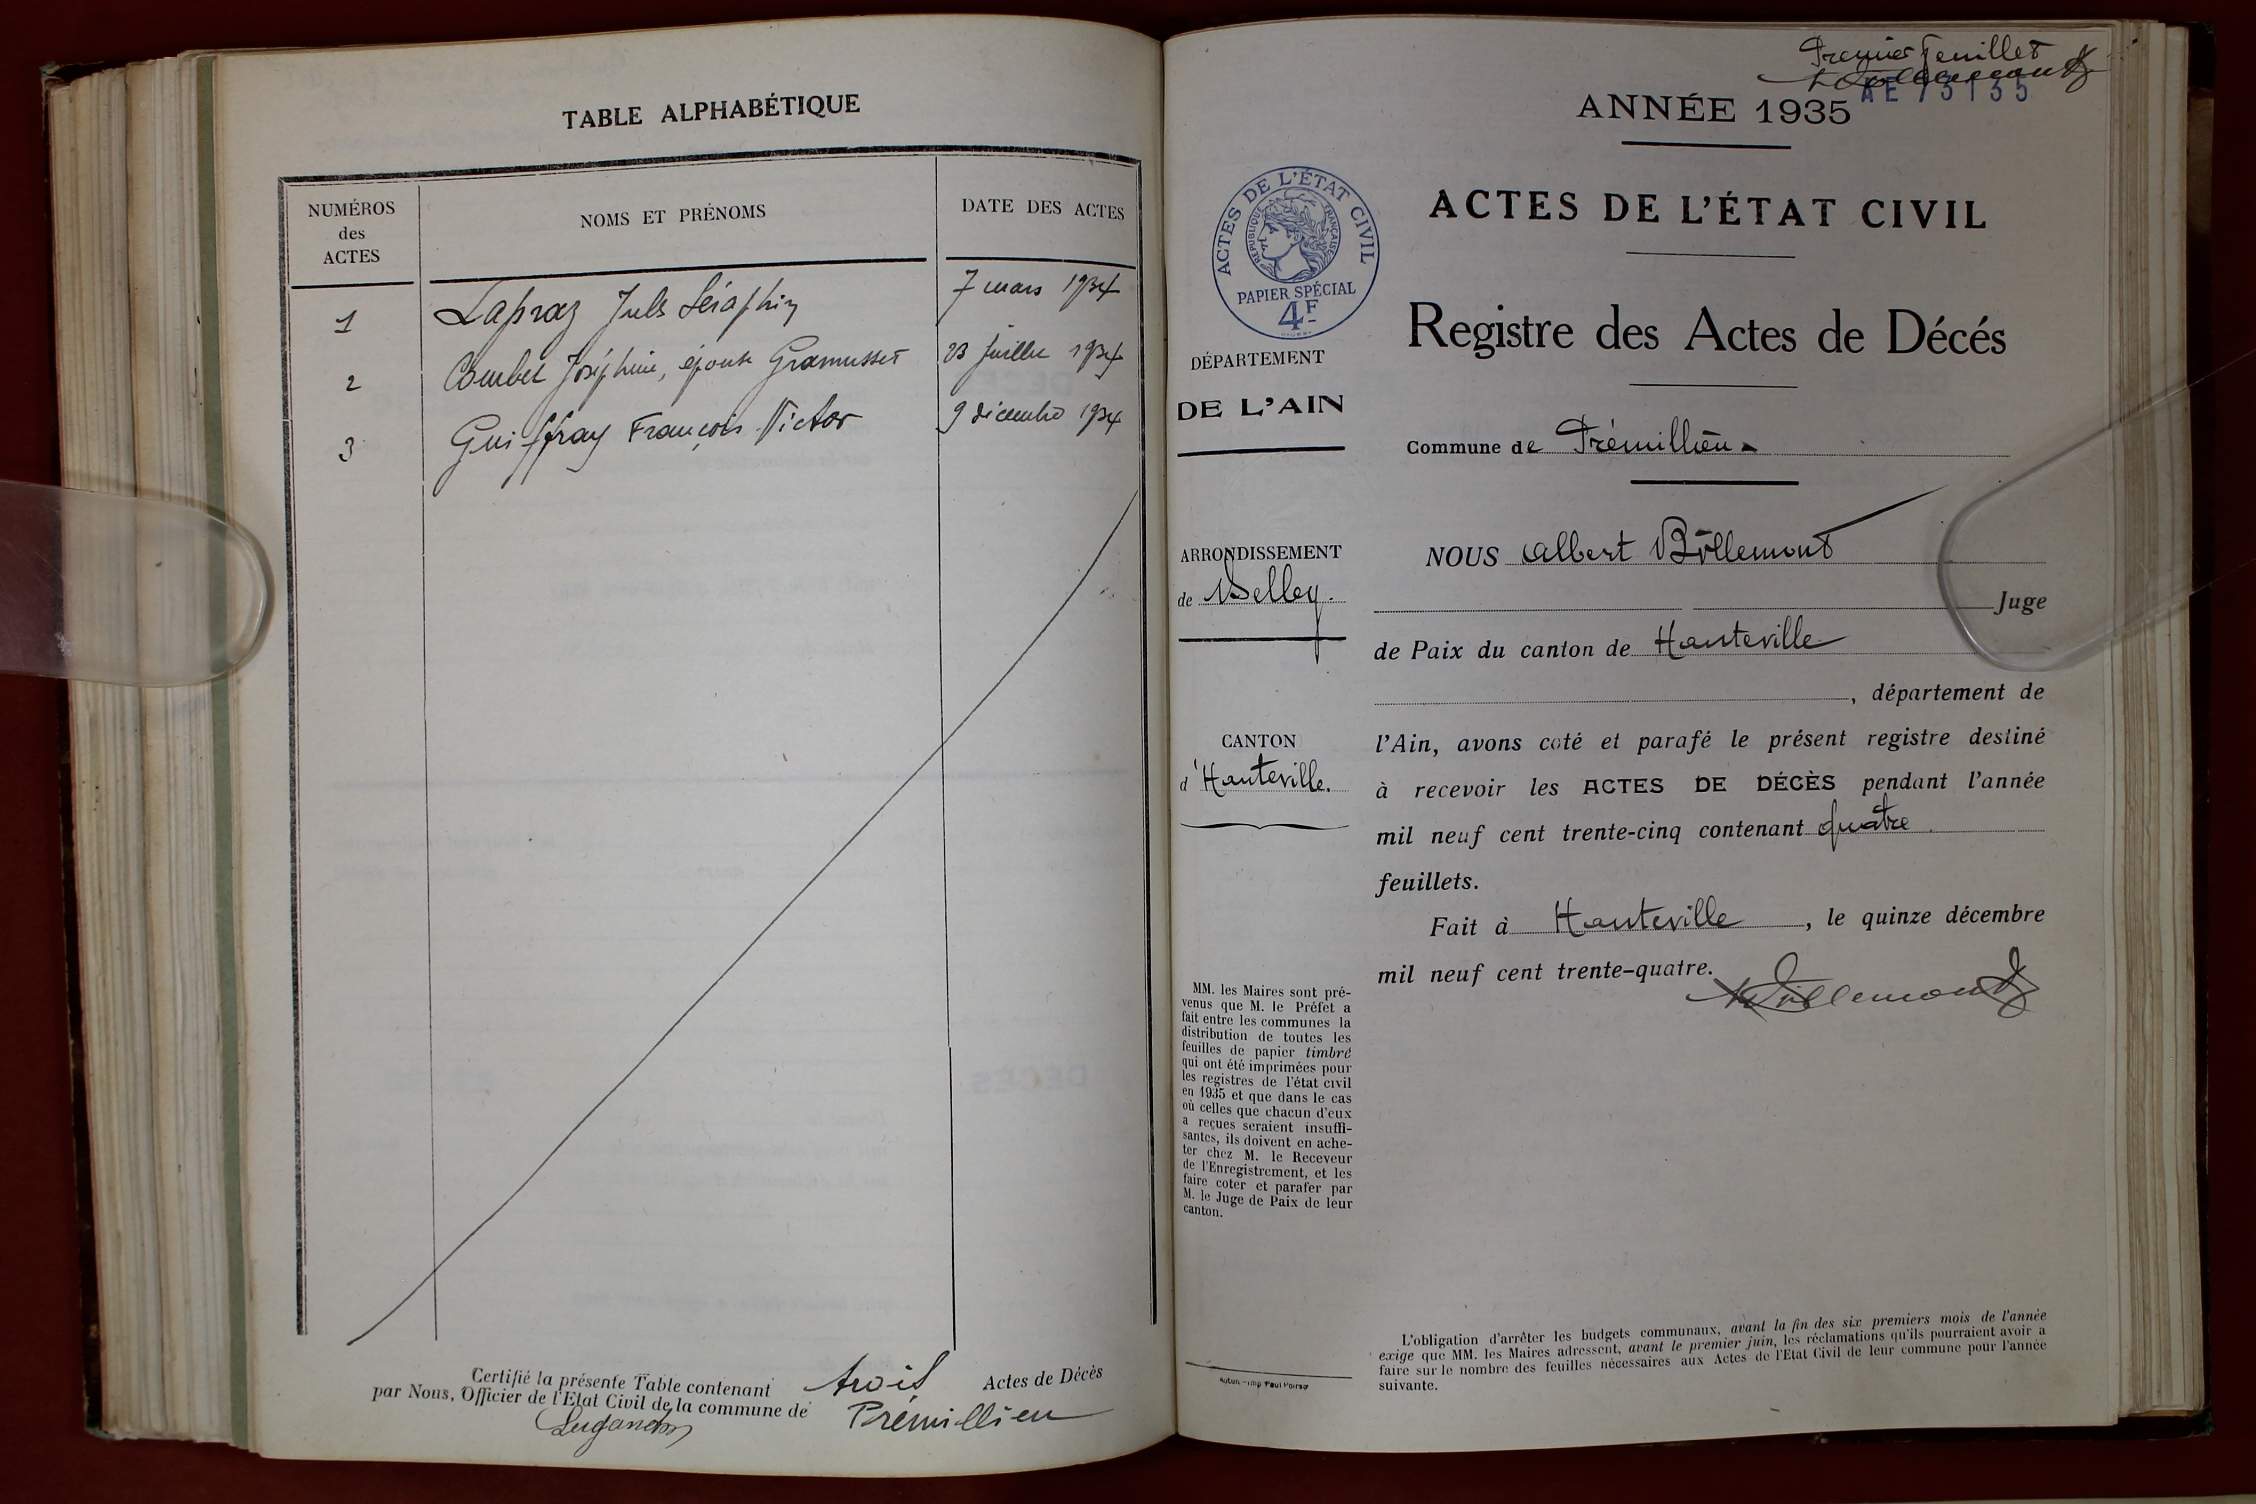 TABLE ALPHABÉTIQUE
NUMÉROS
des
ACTES
NOMS ET PRÉNOMS
DATE DES ACTES
1 Lapraz Jules Séraphin 7 mars 1934
2 Combet Joséphine, épouse Gramusset 23 juillet 1934
3 Guiffray François Victor 9 décembre 1934
Certifié la présente Table contenant trois Actes de Décès
par Nous, Officier de l'Etat Civil de la commune de Prémillieu
Premier feuillet
AE 73135
ANNÉE 1935
ACTES DE L'ÉTAT CIVIL
RÉPUBLIQUE FRANÇAISE
PAPIER SPÉCIAL
4F
ACTES DE L'ÉTAT CIVIL
Registre des Actes de Décés
DÉPARTEMENT
DE L'AIN
Commune de Prémillieu
ARRONDISSEMENT
de Belley.
CANTON
d'Hauteville.
NOUS Albert Billemont
Juge
de Paix du canton de Hauteville
, département de
l'Ain, avons coté et parafé le présent registre destiné
à recevoir les ACTES DE DÉCÈS pendant l'année
mil neuf cent trente-cinq contenant quatre
feuillets.
Fait à Hauteville, le quinze décembre
mil neuf cent trente-quatre.
Billemont
MM. les Maires sont pré-
venus que M. le Préfet a
fait entre les communes la
distribution de toutes les
feuilles de papier timbré
qui ont été imprimées pour
les registres de l'état civil
en 1935 et que dans le cas
où celles que chacun d'eux
a reçues seraient insuffi-
santes, ils doivent en ache-
ter chez M. le Receveur
de l'Enregistrement, et les
faire coter et parafer par
M. le Juge de Paix de leur
canton.
Autun - Imp Paul Poirso
L'obligation d'arrêter les budgets communaux, avant la fin des six premiers mois de l'année
exige que MM. les Maires adressent, avant le premier juin, les réclamations qu'ils pourraient avoir a
faire sur le nombre des feuilles nécessaires aux Actes de l'Etat Civil de leur commune pour l'année
suivante.